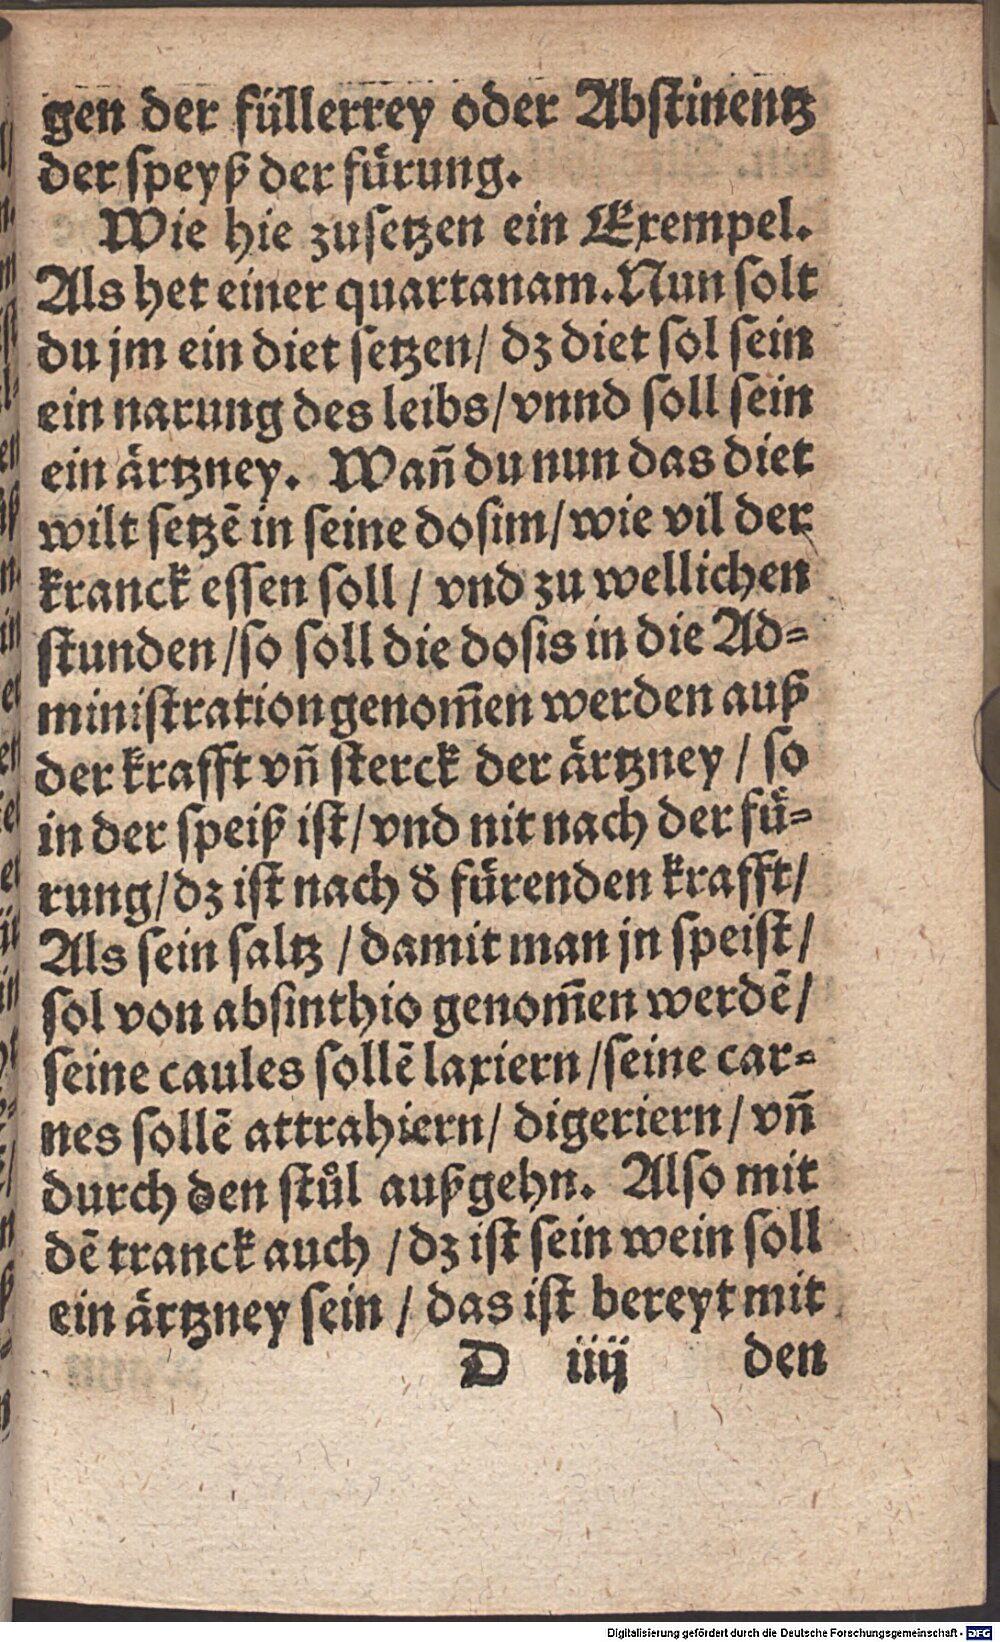 gen der füllerrey oder Abstinentz
der speyß der fuͤrung.
Wie hie zusetzen ein Exempel.
Als het einer quartanam. Nun solt
du jm ein diet setzen / dz diet sol sein
ein narung des leibs / vnnd soll sein
ein aͤrtzney. Wañ du nun das diet
wilt setzẽ in seine dosim / wie vil der
kranck essen soll / vnd zu wellichen
stunden / so soll die dosis in die Ad-
ministration genom̃en werden auß
der krafft vñ sterck der aͤrtzney / so
in der speiß ist / vnd nit nach der fuͤ-
rung / dz ist nach d̾ fuͤrenden krafft /
Als sein saltz / damit man jn speist /
sol von absinthio genom̃en werdẽ /
seine caules sollẽ laxiern / seine car-
nes sollẽ attrahiern / digeriern / vñ
durch den stůl außgehn. Also mit
dẽ tranck auch / dz ist sein wein soll
ein aͤrtzney sein / das ist bereyt mit
D iiij den
Digitalisierung gefördert durch die Deutsche Forschungsgemeinschaft - DFG